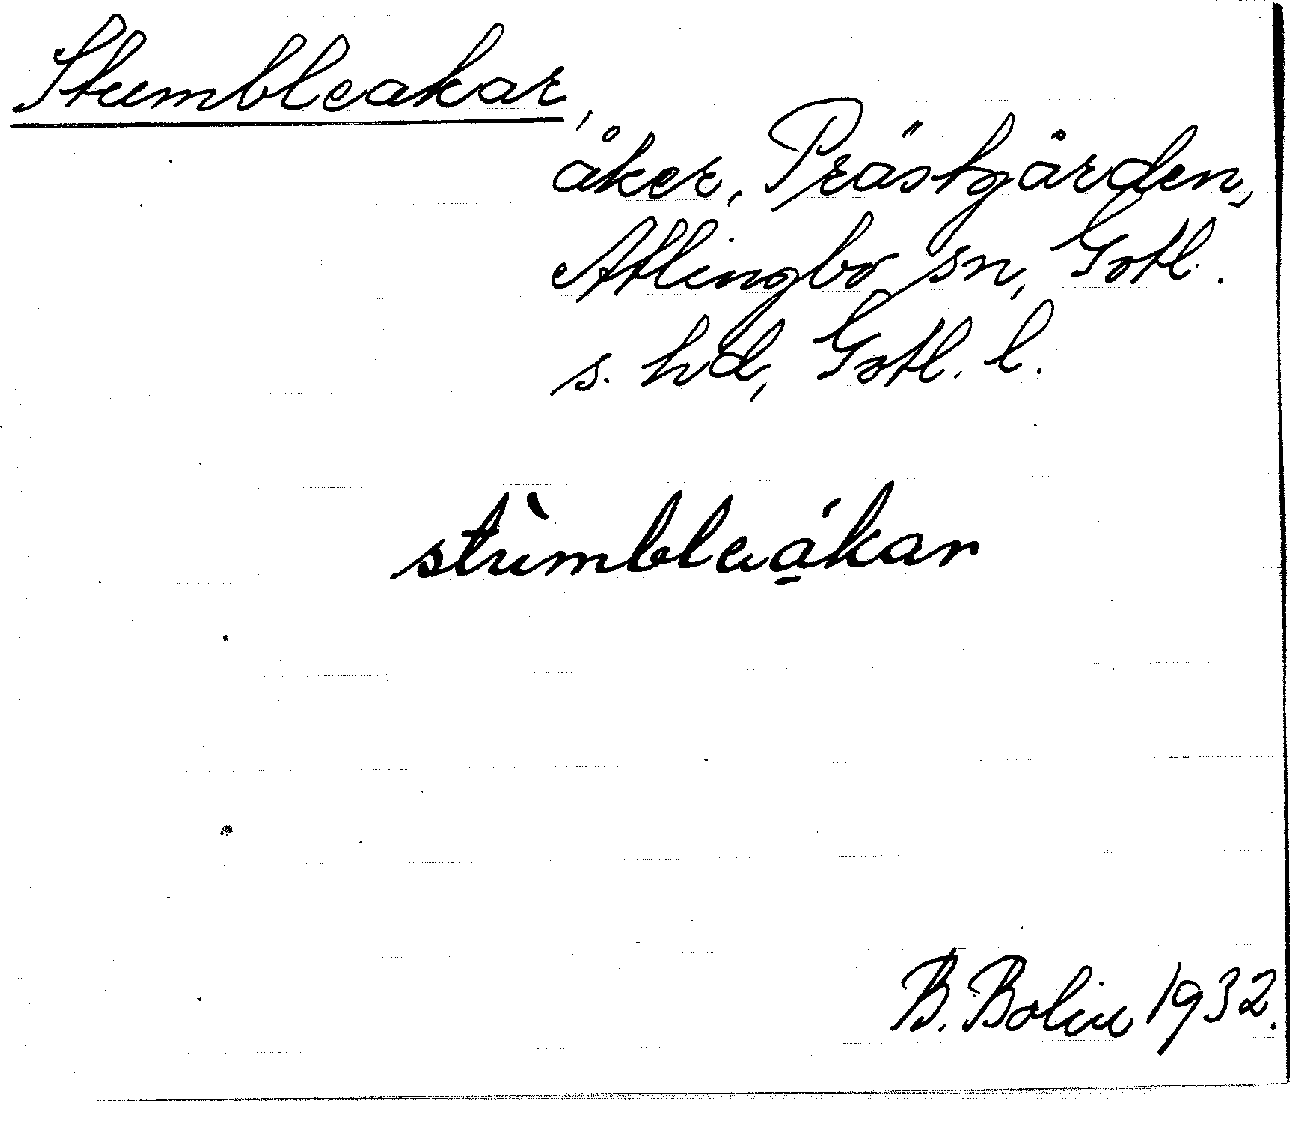 Stumbleakar,
åker, Prästgården,
Atlingbo sn, Gotl.
s. hd, Gotl. l.
stùmbleá̠kar
B. Bolin 1932.